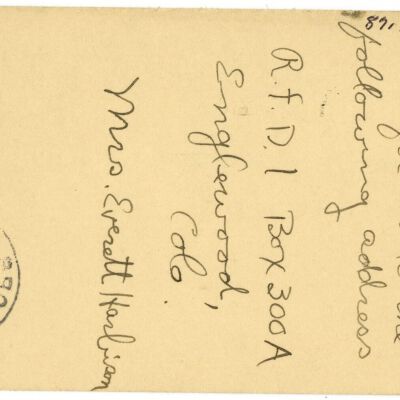 to the
following address
R.f.D. 1 Box 300A
Englewood,
Colo.
Mrs. Everett Harbison
871.